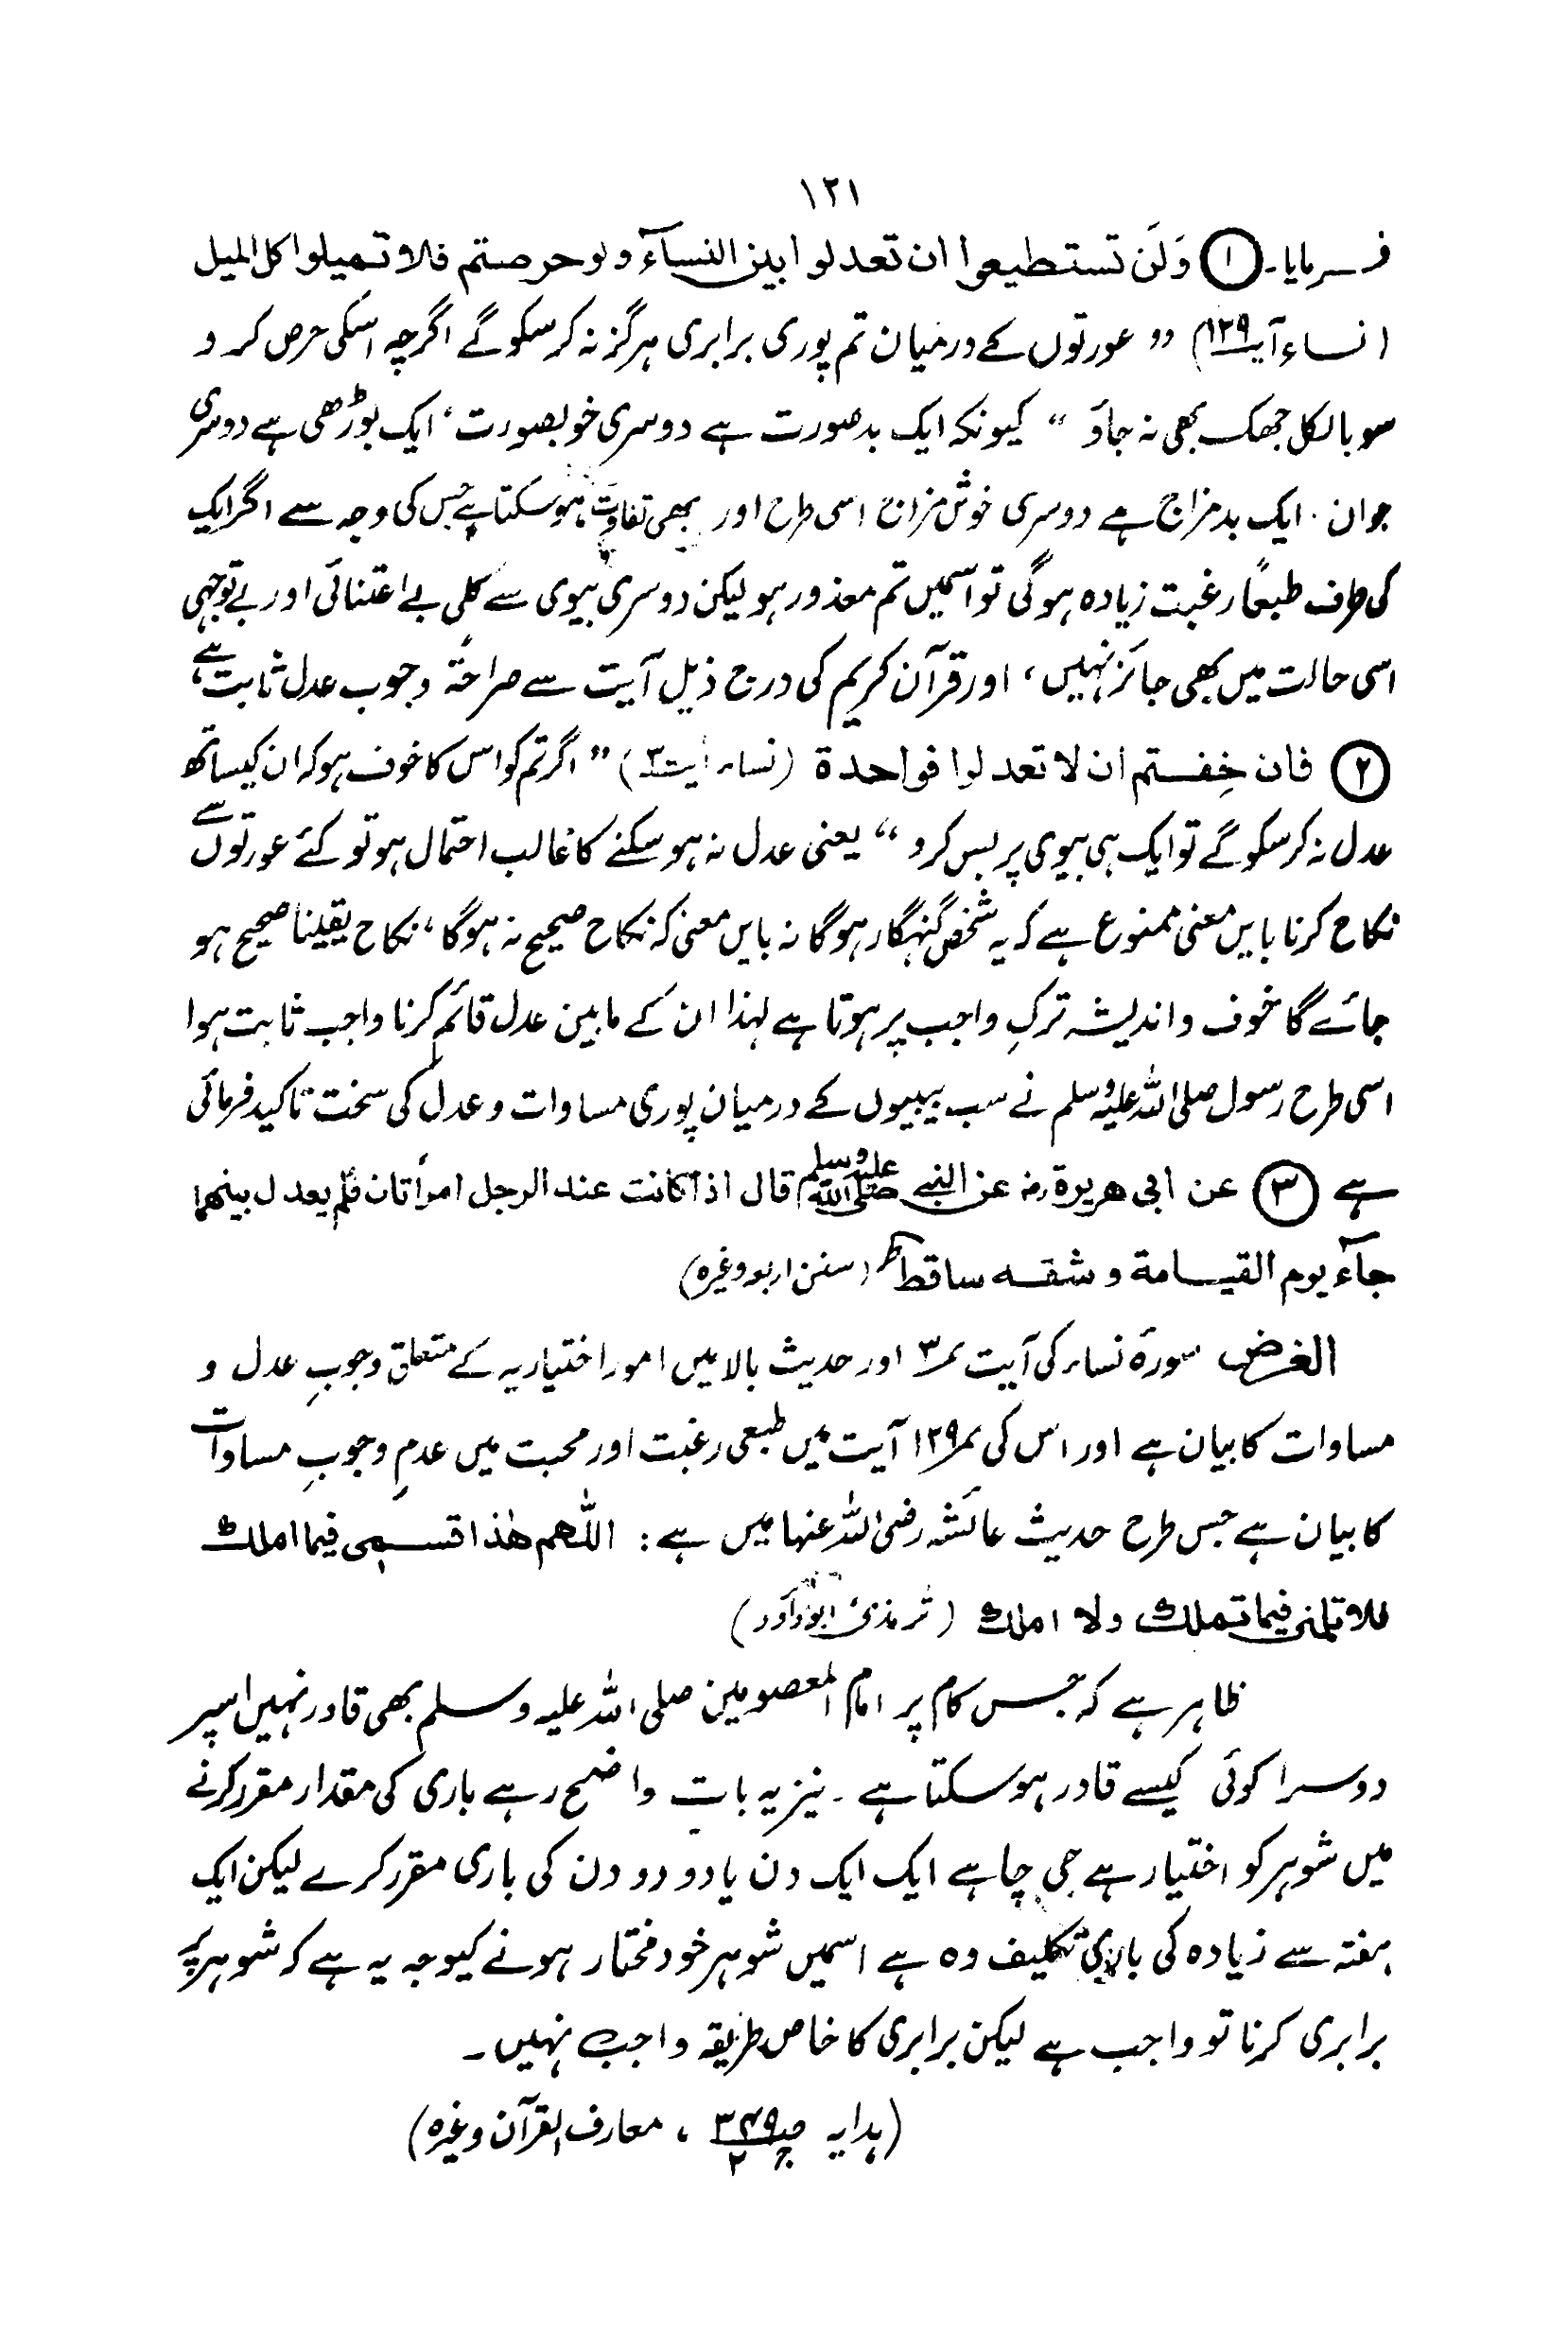 ۱۲۱
فرمایا۔ ① وَلَن تستطیعوا ان تعدلوا بین النسآء ولو حرصتم فلا تمیلوا کل المیل
(نساء آیت ۱۲۹) ” عورتوں کے درمیان تم پوری برابری ہرگز نہ کرسکوگے اگرچہ اسکی حرص کرو
سو بالکل جھک بھی نہ جاؤ “ کیونکہ ایک بدصورت ہے دوسری خوبصورت، ایک بوڑھی ہے دوسری
جوان . ایک بدمزاج ہے دوسری خوش مزاج اسی طرح اور بھی تفاوت ہوسکتا ہے جس کی وجہ سے اگر ایک
کی طرف طبعاً رغبت زیادہ ہوگی تو اسمیں تم معذور ہو لیکن دوسری بیوی سے کلی بے اعتنائی اور بے توجہی
اسی حالت میں بھی جائز نہیں ، اور قرآن کریم کی درج ذیل آیت سے صراحۃً وجوب عدل ثابت ہے،
② فان خِفتم ان لا تعدلوا فواحدة (نساء آیت ۳) ” اگر تم کو اس کا خوف ہو کہ ان کیساتھ
عدل نہ کرسکوگے تو ایک ہی بیوی پر بس کرو “ یعنی عدل نہ ہوسکنے کا غالب احتمال ہو تو کئے عورتوں سے
نکاح کرنا بایں معنی ممنوع ہے کہ یہ شخص گنہگار ہوگا نہ بایں معنی کہ نکاح صحیح نہ ہوگا، نکاح یقینا صحیح ہو
جائے گا خوف و اندیشہ ترکِ واجب پر ہوتا ہے لہذا ان کے مابین عدل قائم کرنا واجب ثابت ہوا
اسی طرح رسول صلی اللہ علیہ وسلم نے سب بیبیوں کے درمیان پوری مساوات وعدل کی سخت تاکید فرمائی
ہے ③ عن ابی ھریرة رض عن النبی صلی اللہ علیہ وسلم قال اذا کانت عند الرجل امرأتان فلم یعدل بینھما
جآء یوم القیامة و شقه ساقط (سنن اربعہ وغیرہ)
الغرض سورۂ نساء کی آیت ۳ اور حدیث بالا میں امور اختیاریہ کے متعلق وجوبِ عدل و
مساوات کا بیان ہے اور اس کی ۱۲۹ آیت میں طبعی رغبت اور محبت میں عدمِ وجوبِ مساوات
کا بیان ہے جس طرح حدیث عائشہ رضی اللہ عنہا میں ہے : اللّٰھم ھٰذا قسمی فیما املك
فلا تلمنی فیما تملك ولا املك (ترمذی ابوداؤد)
ظاہر ہے کہ جس کام پر امام المعصومین صلی اللہ علیہ وسلم بھی قادر نہیں اسپر
دوسرا کوئی کیسے قادر ہوسکتا ہے ۔ نیز یہ بات واضح رہے باری کی مقدار مقرر کرنے
میں شوہر کو اختیار ہے جی چاہے ایک ایک دن یا دو دو دن کی باری مقرر کرے لیکن ایک
ہفتہ سے زیادہ کی باری تکلیف دہ ہے اسمیں شوہر خود مختار ہونے کیوجہ یہ ہے کہ شوہر پر
برابری کرنا تو واجب ہے لیکن برابری کا خاص طریقہ واجب نہیں ۔
(ہدایہ ص ۳۴۹ ج ۲ ، معارف القرآن وغیرہ)